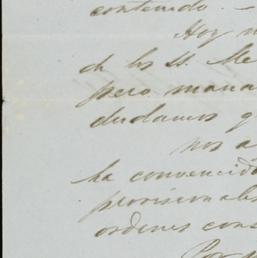 contenido. -
Hoy
de los SS. Me
pero maña
dudamos q
nos a
ha convencido
provisionales
ordenes cons
Por